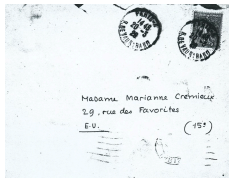 Madame Marianne Crémieux
29, rue des Favorites
E.V. (15e)